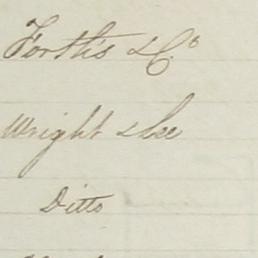 Forths & Co
Wright & Lee
Ditto